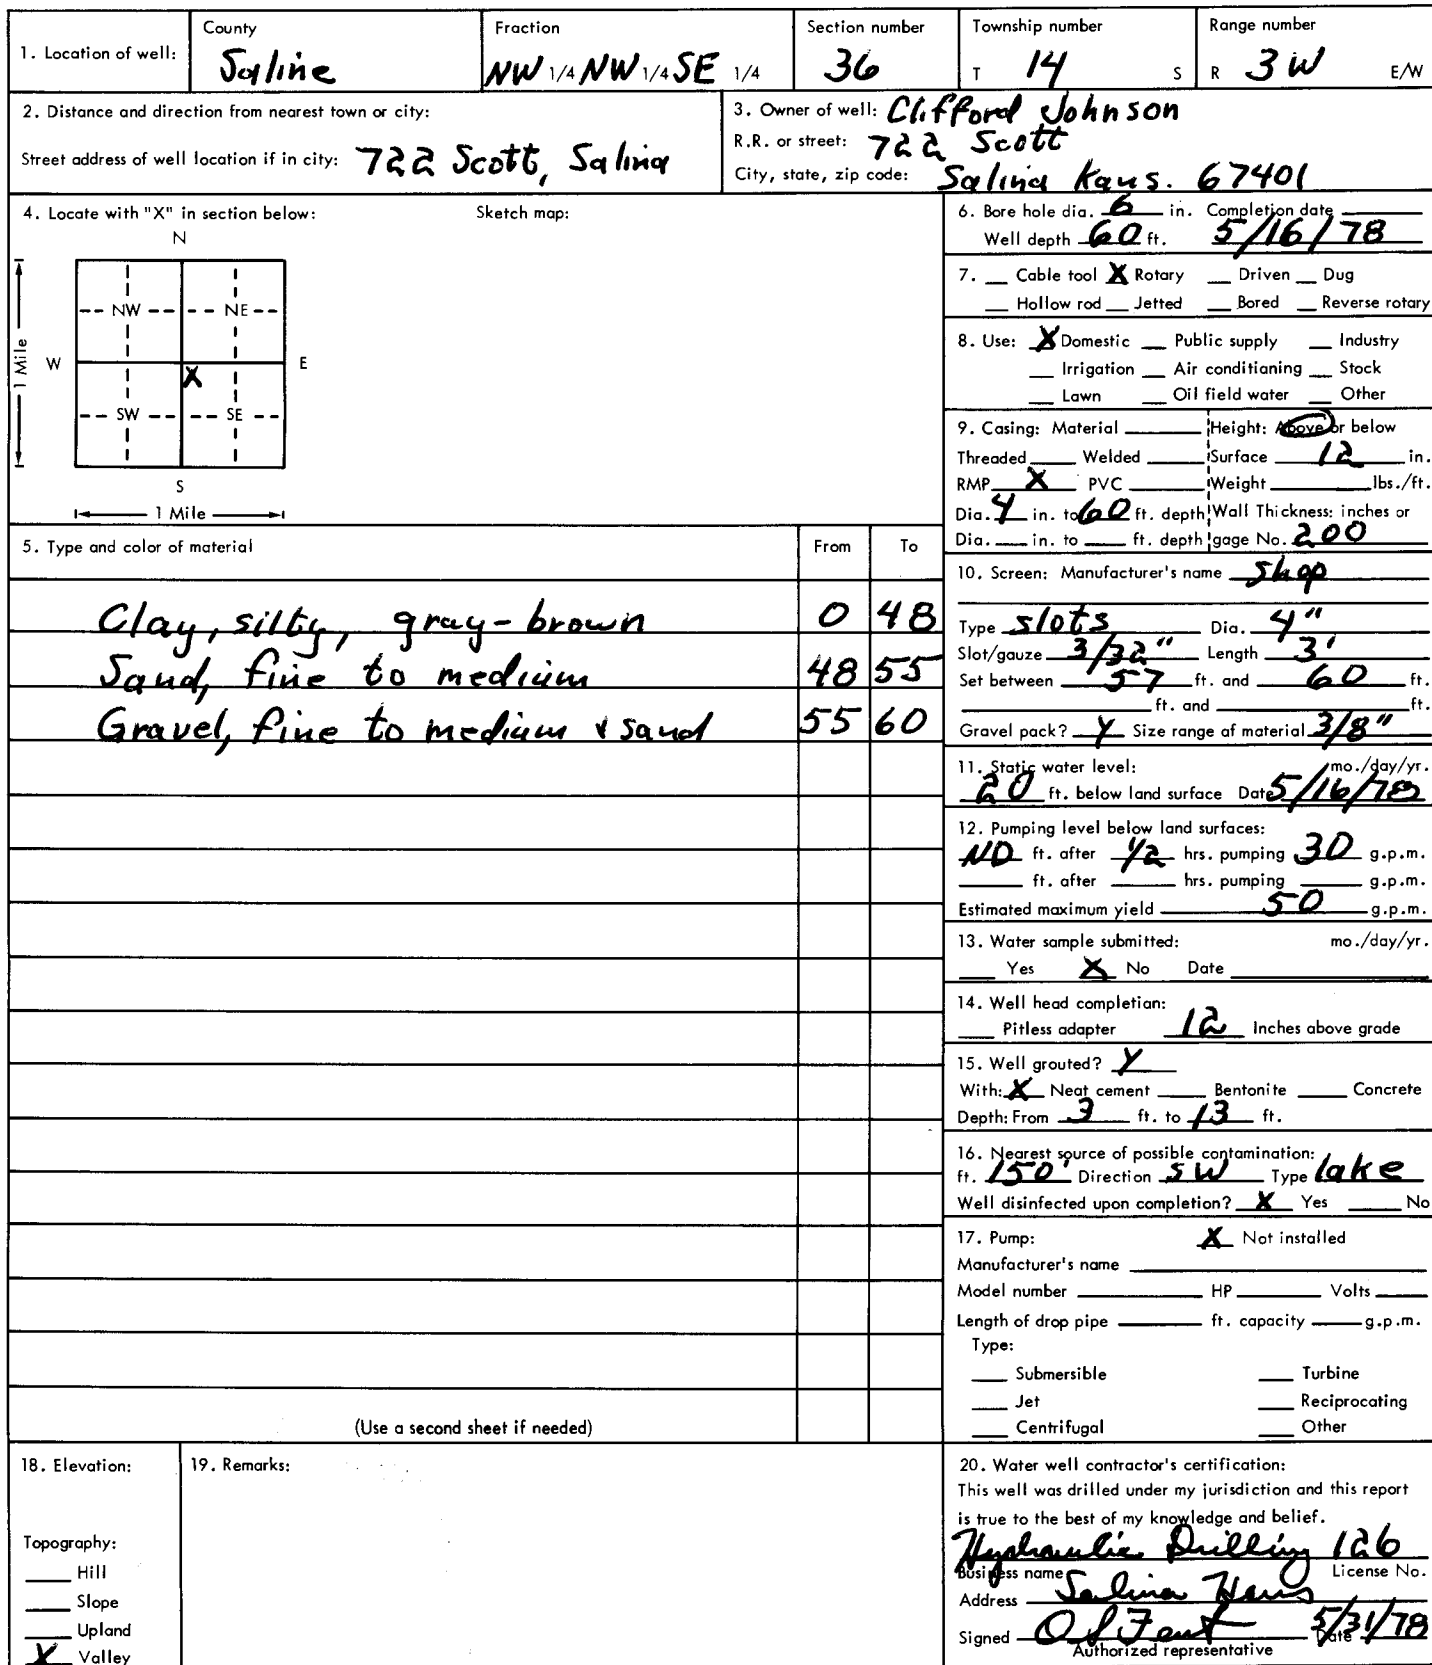 1. Location of well: County Saline Fraction NW 1/4 NW 1/4 SE 1/4 Section number 36 Township number T 14 S Range number R 3 W E/W
2. Distance and direction from nearest town or city:
Street address of well location if in city: 722 Scott, Salina
3. Owner of well: Clifford Johnson
R.R. or street: 722 Scott
City, state, zip code: Salina Kans. 67401
4. Locate with "X" in section below: Sketch map:
N
NW NE
W E
X
SW SE
S
1 Mile
1 Mile
5. Type and color of material From To
Clay, silty, gray-brown 0 48
Sand, fine to medium 48 55
Gravel, fine to medium & sand 55 60
(Use a second sheet if needed)
6. Bore hole dia. 6 in. Completion date
Well depth 60 ft. 5/16/78
7. Cable tool X Rotary Driven Dug
Hollow rod Jetted Bored Reverse rotary
8. Use: X Domestic Public supply Industry
Irrigation Air conditioning Stock
Lawn Oil field water Other
9. Casing: Material Height: Above or below
Threaded Welded Surface 12 in.
RMP X PVC Weight lbs./ft.
Dia. 4 in. to 60 ft. depth Wall Thickness: inches or
Dia. in. to ft. depth gage No. 200
10. Screen: Manufacturer's name Shop
Type slots Dia. 4"
Slot/gauze 3/32" Length 3'
Set between 57 ft. and 60 ft.
ft. and ft.
Gravel pack? Y Size range of material 3/8"
11. Static water level: mo./day/yr.
20 ft. below land surface Date 5/16/78
12. Pumping level below land surfaces:
ND ft. after 1/2 hrs. pumping 30 g.p.m.
ft. after hrs. pumping g.p.m.
Estimated maximum yield 50 g.p.m.
13. Water sample submitted: mo./day/yr.
Yes X No Date
14. Well head completion:
Pitless adapter 12 Inches above grade
15. Well grouted? Y
With: X Neat cement Bentonite Concrete
Depth: From 3 ft. to 13 ft.
16. Nearest source of possible contamination:
ft. 150' Direction SW Type lake
Well disinfected upon completion? X Yes No
17. Pump: X Not installed
Manufacturer's name
Model number HP Volts
Length of drop pipe ft. capacity g.p.m.
Type:
Submersible Turbine
Jet Reciprocating
Centrifugal Other
18. Elevation:
Topography:
Hill
Slope
Upland
X Valley
19. Remarks:
20. Water well contractor's certification:
This well was drilled under my jurisdiction and this report
is true to the best of my knowledge and belief.
Hydraulic Drilling 126
Business name License No.
Address Salina Kans
Signed O S Fent 5/31/78 Date
Authorized representative